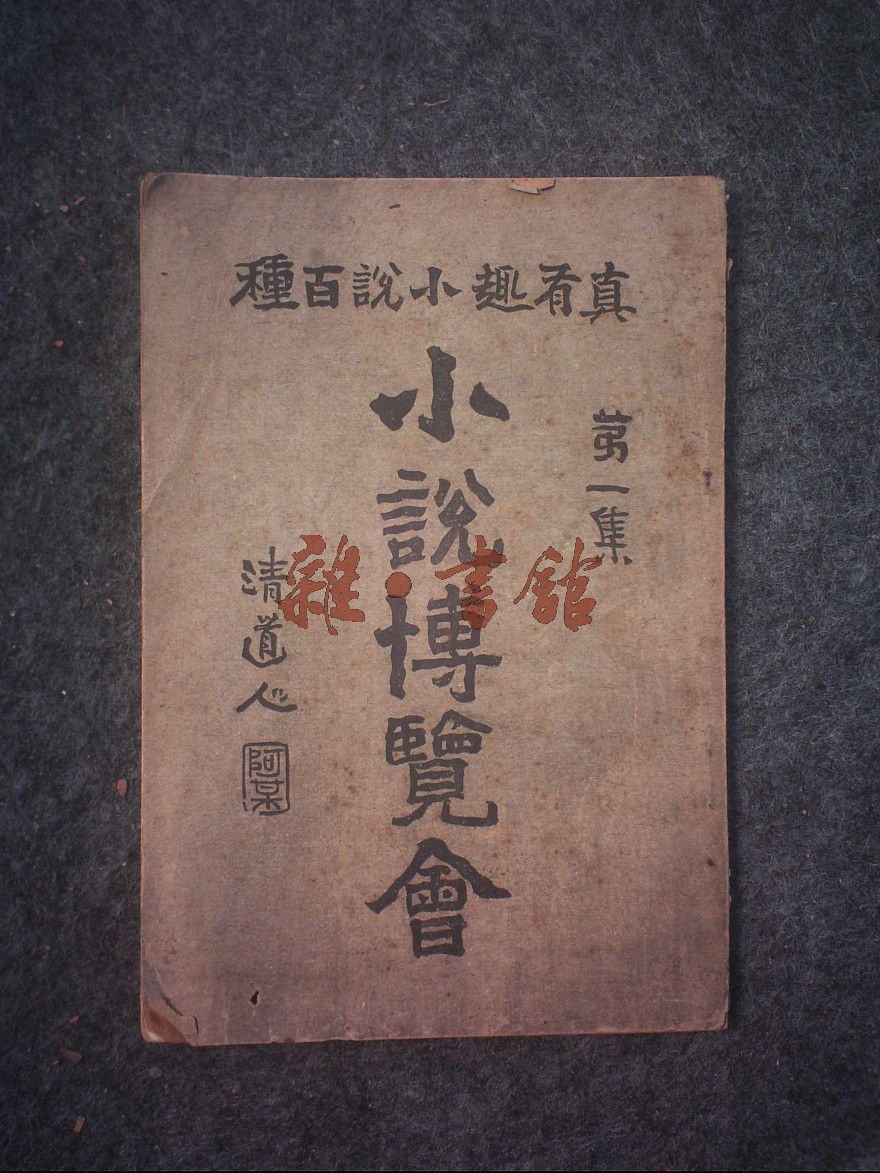 真有趣小說百種
第一集
小說博覽會
清道人
阿某
雜·書館